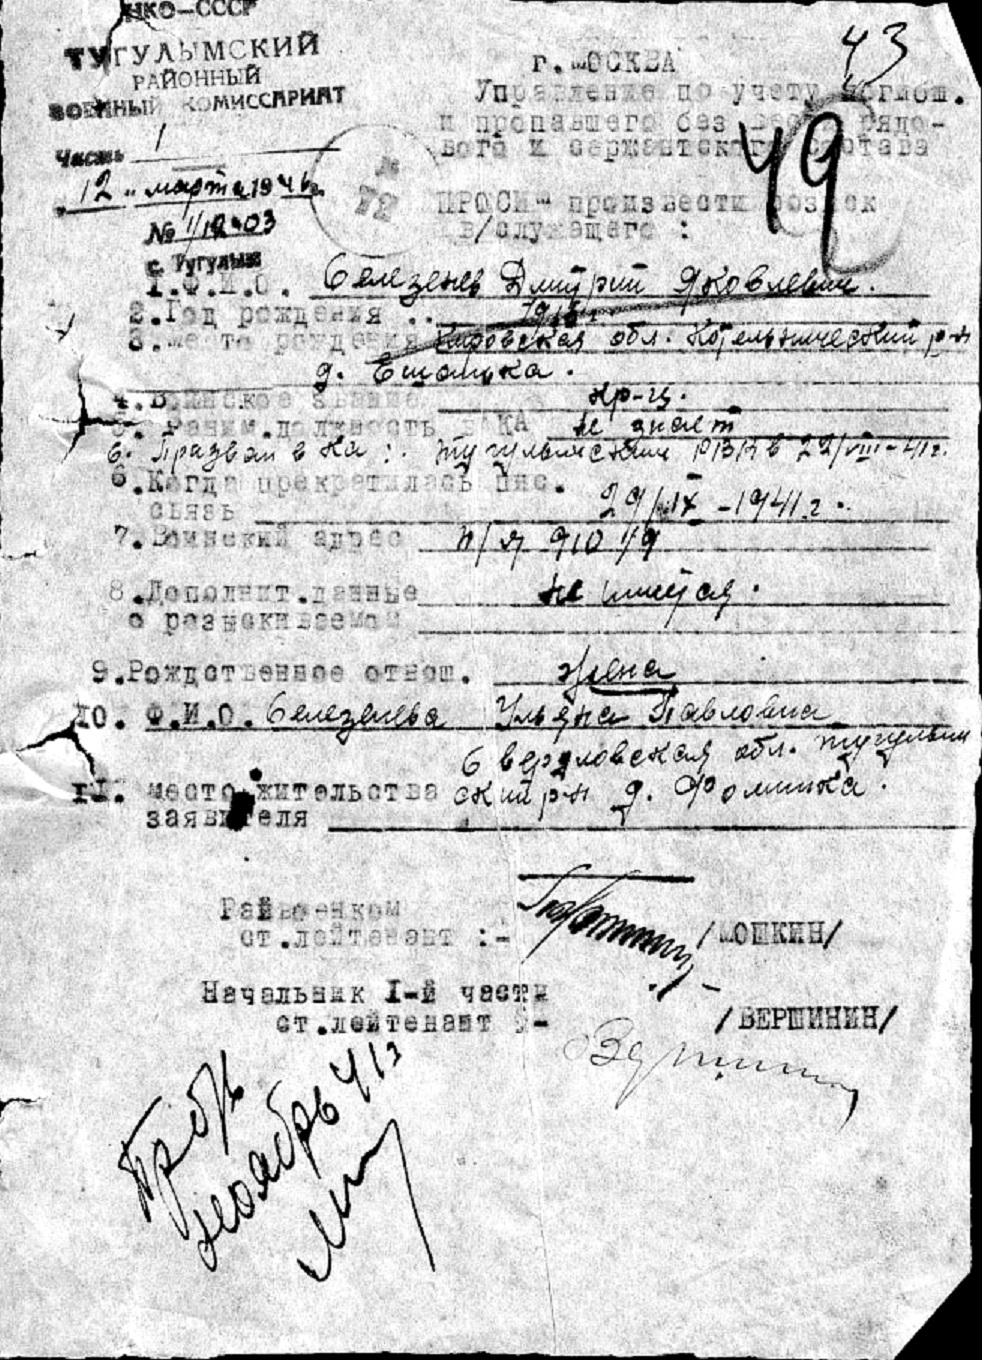 НКО-СССР
ТУГУЛЫМСКИЙ
РАЙОННЫЙ
ВОЕННЫЙ КОМИССАРИАТ
Часть 1
"12" марта 1946г.
с. Тугулым
43
49
72
г. МОСКВА
Управление по учету погибш.
и пропавшего без вести рядо-
вого и сержантского состава
ПРОСИМ произвести розыск
в/служащего :
1.Ф.И.О. Селезенев Дмитрий Яковлевич.
2.Год рождения ..
3.место рождения Кировская обл. Котельнический р-н
д.
4.Воинское звание кр-ц.
5. Заним.должность в КА не знает
6. Призван в Ка :. Тугулымским РВК в 22/VIII-41г.
6.Когда прекратилась пис.
связь 29/IX-1941.г.
7.Воинский адрес п/я 910 49
8.Дополнит.данные не имеется.
о разыскиваемом
9.Рождственное отнош. жена
10. Ф.И.О. Селезенева Ульяна Павловна
Свердловская обл. Тугулым
11. место жительства ский р-н д. Фоминка.
заявителя
Райвоенком
ст.лейтенант :- /МОШКИН/
Начальник I-й части
ст.лейтенант :- /ВЕРШИНИН/
ноябрь 41